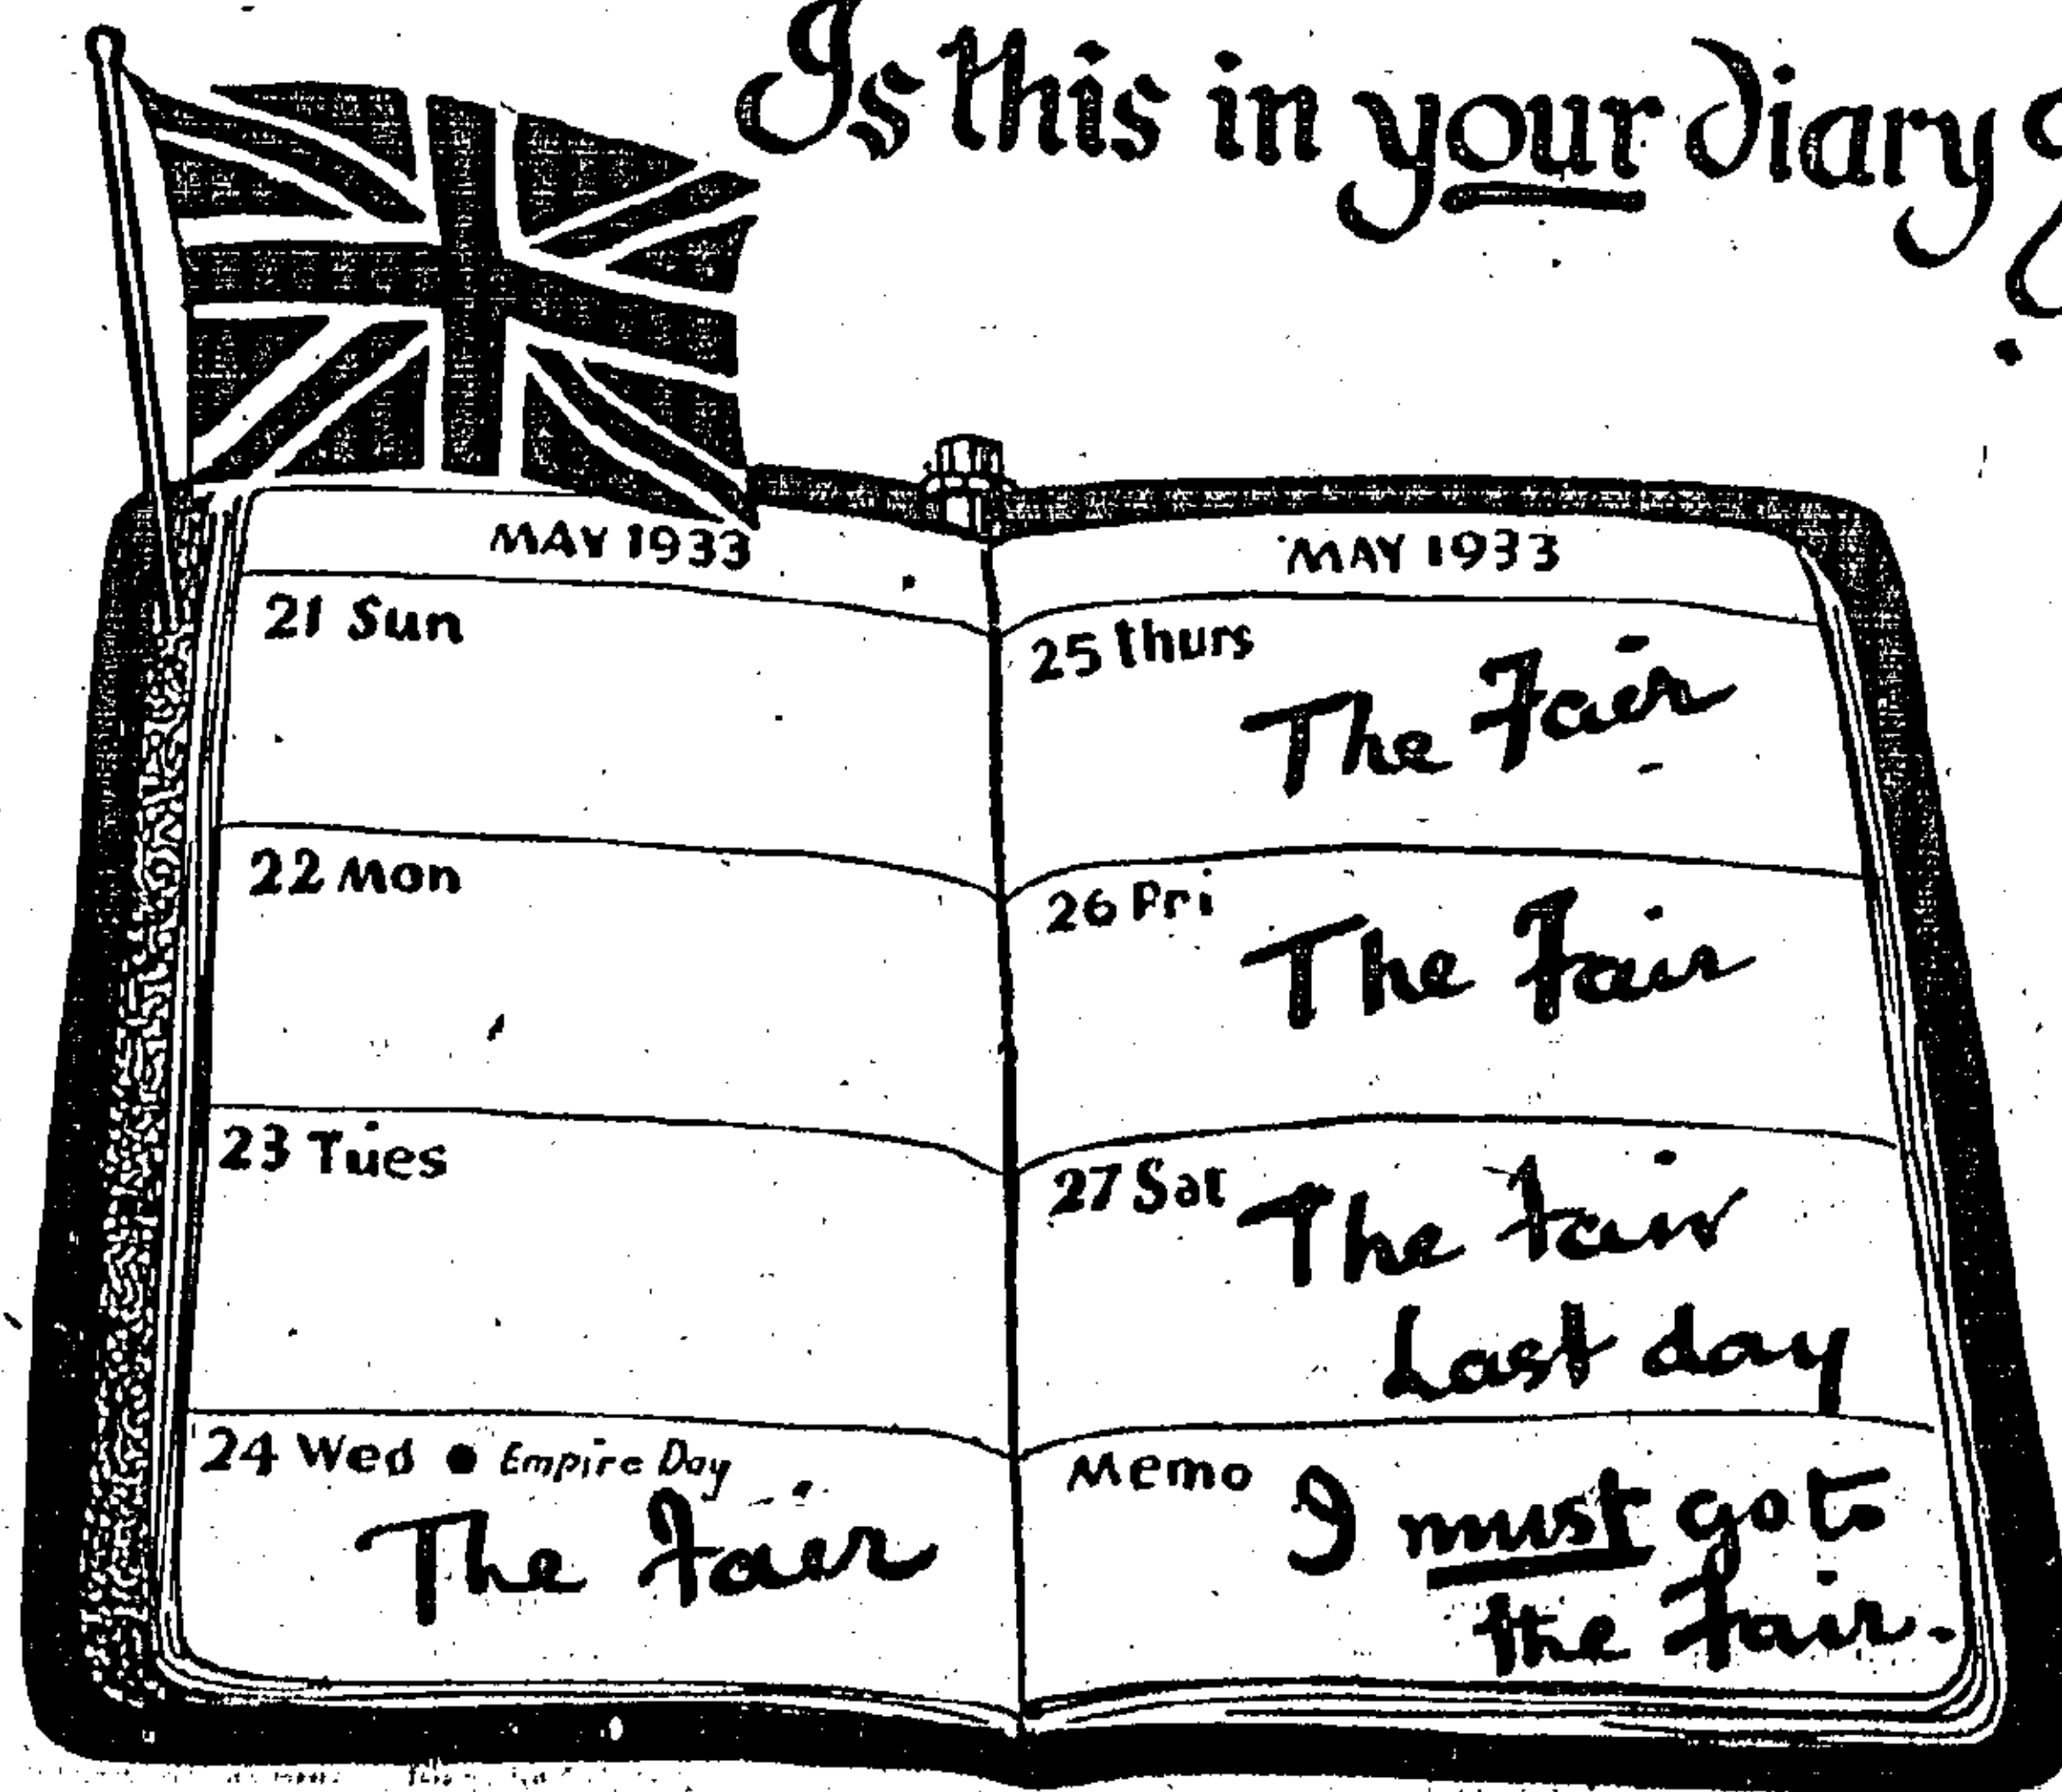 Is this in your diary ?
MAY 1933
21 Sun
22 Mon
23 Tues
24 Wed ● Empire Day
The Fair
MAY 1933
25 thurs
The Fair
26 Fri
The Fair
27 Sat
The Fair
Last day
Memo
I must go to
the Fair.